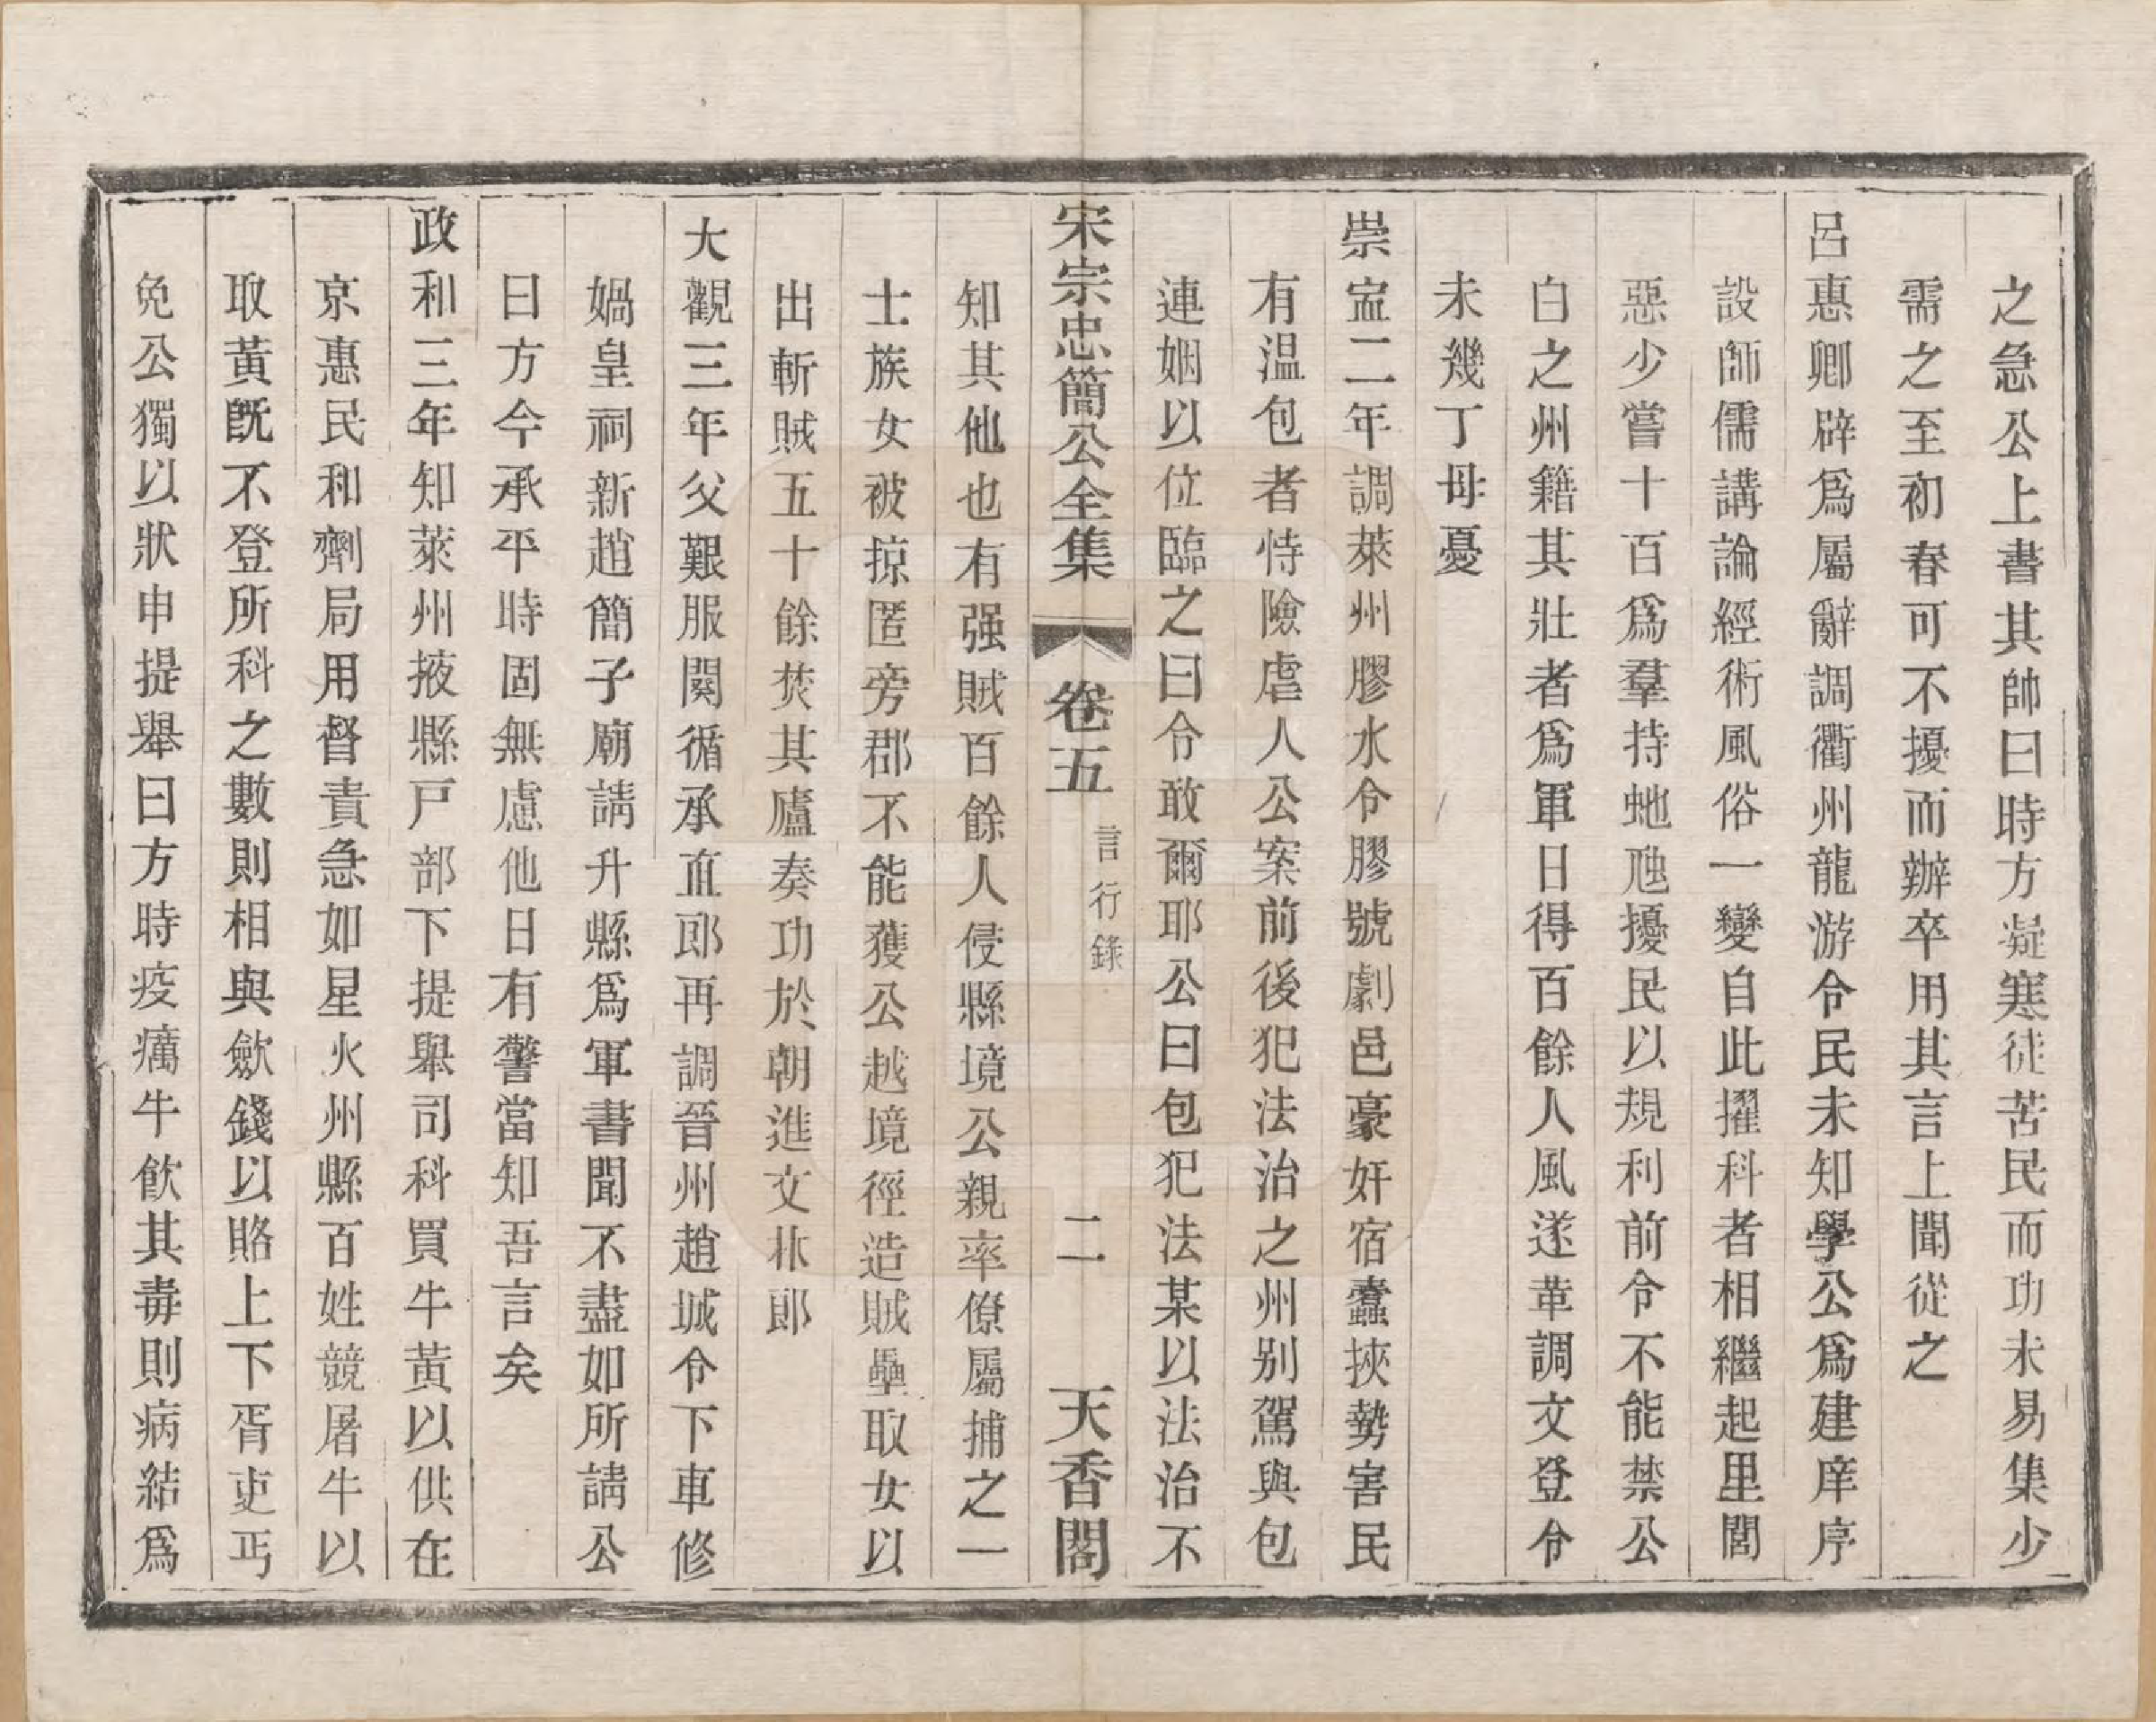 之急公上書其帥曰時方凝寒徒苦民而功未易集少
需之至初春可不擾而辦卒用其言上聞從之
呂惠卿辟爲屬辭調衢州龍游令民未知學公爲建庠序
設師儒講論經術風俗一變自此擢科者相繼起里閭
惡少嘗十百爲羣持虵虺擾民以規利前令不能禁公
白之州籍其壯者爲軍日得百餘人風遂革調文登令
未幾丁母憂
崇寍二年調萊州膠水令膠號劇邑豪奸宿蠹挾勢害民
有温包者恃險虐人公案前後犯法治之州别駕與包
連姻以位臨之曰令敢爾耶公曰包犯法某以法治不
宋宗忠簡公全集 卷五 言行錄 二 天香閣
知其他也有强賊百餘人侵縣境公親率僚屬捕之一
士族女被掠匿旁郡不能獲公越境徑造賊壘取女以
出斬賊五十餘焚其廬奏功於朝進文林郎
大觀三年父艱服闋循承直郎再調晉州趙城令下車修
媧皇祠新趙簡子廟請升縣爲軍書聞不盡如所請公
曰方今承平時固無慮他日有警當知吾言矣
政和三年知萊州掖縣戸部下提舉司科買牛黃以供在
京惠民和劑局用督責急如星火州縣百姓競屠牛以
取黃既不登所科之數則相與歛錢以賂上下胥吏丐
免公獨以狀申提舉曰方時疫癘牛飲其毒則病結爲